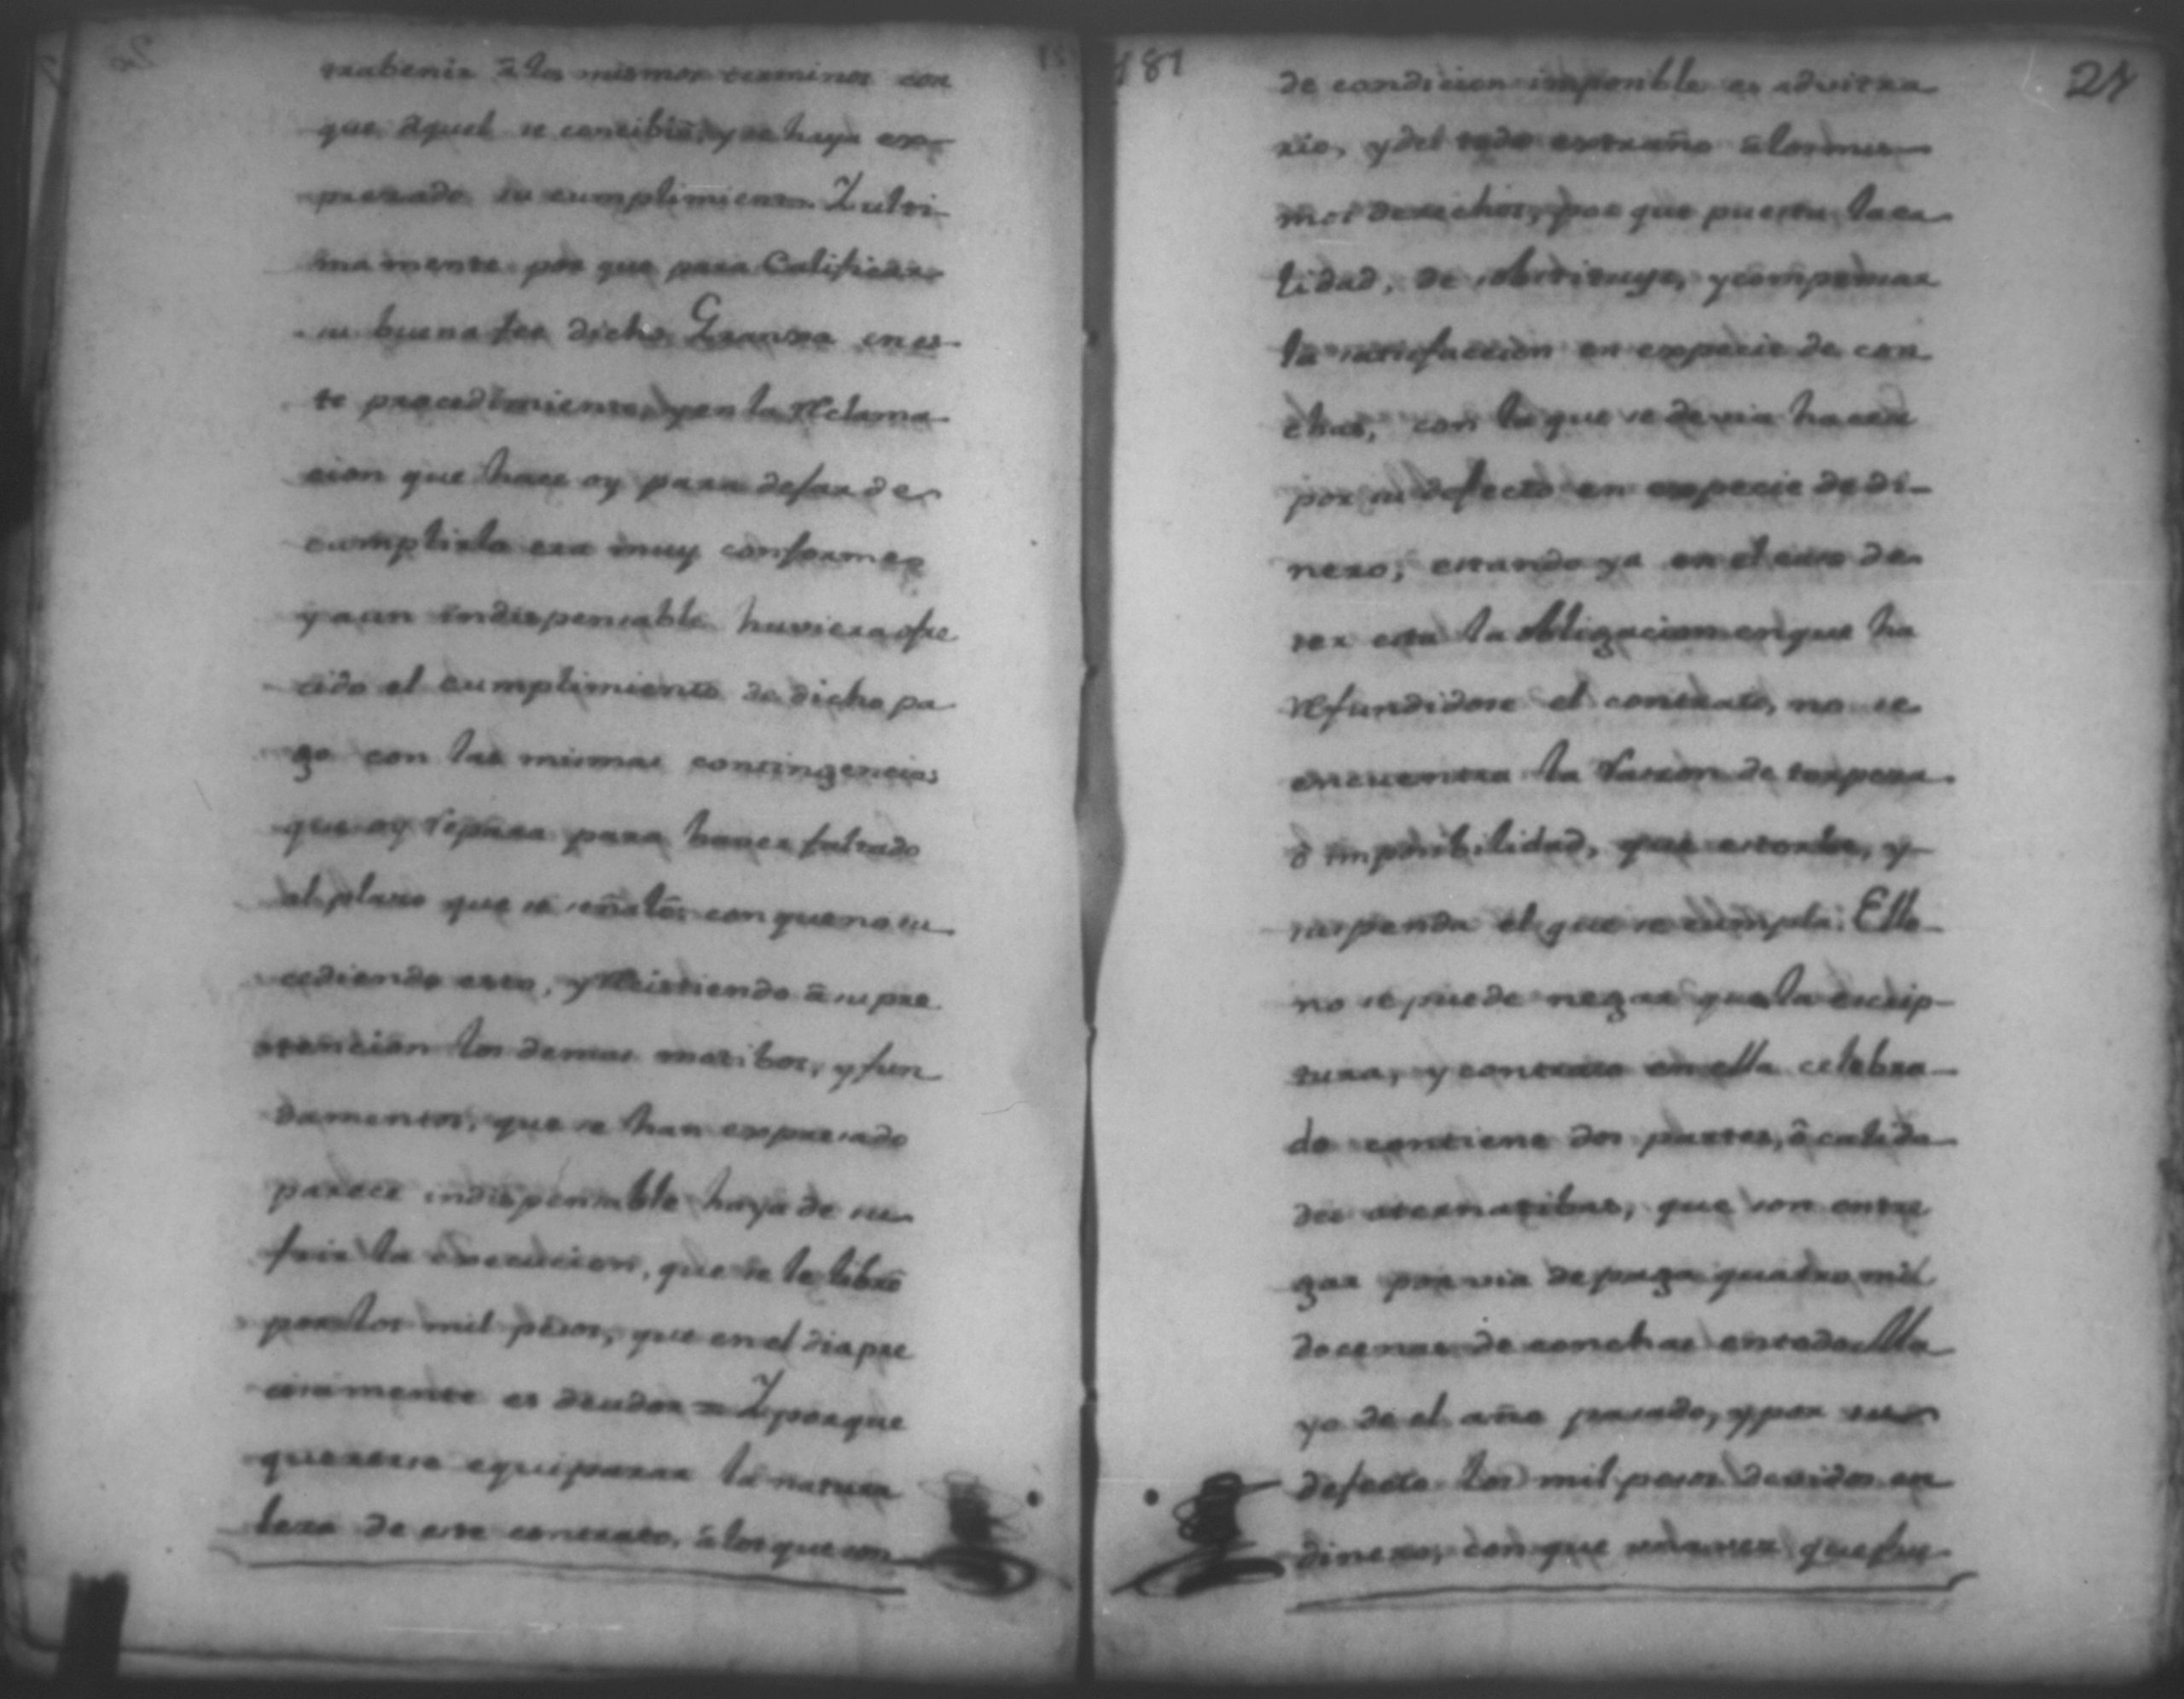 trabenir â los mismos terminos con
que aquel se concibiô, y se haya ex-
presado su cumplimiento. Y ulti-
mamente por que para Calificar
su buena fee dicho Granera en es-
te procedimiento, y en la reclama
cion que hace oy para desar de
cumplirla era muy conforme
y aun indispensable huviera ofre
cido el cumplimiento de dicho pa
go con las mismas contingencias
que oy repara para haver faltado
al plazo que se señalô, con que no su
cediendo esto, y resistiendo â su pre
tencion los demas motibos, y fun
damentos, que se han expresado
parece indispensable haya de su
frir la execucion, que se le librô
por los mil pesos, que en el dia pre
cisamente es deudor = Y porque
quererse equiparar la natura
leza de este contrato, â los que son
181
24
de condicion imposible es advitra
rio, y del todo extraño â los mis
mos derechos, por que puesta la ca
lidad, de substituye, y compensar
la satisfaccion en especie de con
chas, con la que se devia hacer
por su defecto en especie de di-
nero, estando ya en el caso de
ser esta la obligacion en que ha
refundidose el contrato, no se
encuentra la razon de torpeza
ô imposibilidad, que estorbe, y
suspenda el que se cumpla: Ello
no se puede negar que la escrip-
tura, y contrato en ella celebra-
do contiene dos partes, ô calida
des alternatibas, que son entre
gar por via de paga quatro mil
docenas de conchas en todo Ma
yo de el año pasado, y por su
defecto los mil pesos devidos en
dinero, con que una vez que fue